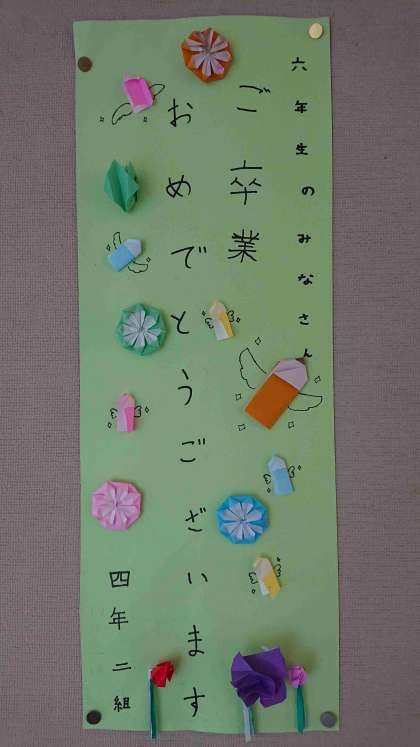 六年生のみなさん
ご卒業
おめでとうございます
四年二組